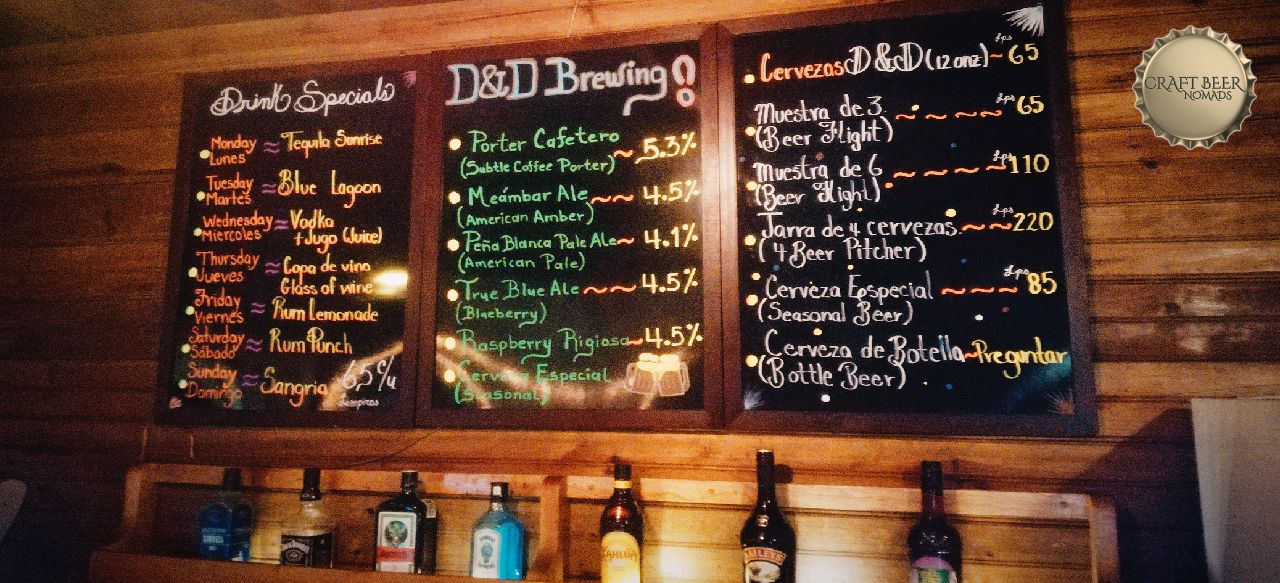 Drink Specials
Monday
Lunes ≈ Tequila Sunrise
Tuesday
Martes ≈ Blue Lagoon
Wednesday
Miercoles ≈ Vodka
+ Jugo (Juice)
Thursday
Jueves ≈ Copa de vino
Glass of wine
Friday
Viernes ≈ Rum Lemonade
Saturday
Sábado ≈ Rum Punch
Sunday
Domingo ≈ Sangria
65 c/u
Lempiras
D&D Brewing!
Porter Cafetero
(Subtle Coffee Porter) ~ 5.3%
Meámbar Ale ~~ 4.5%
(American Amber)
Peña Blanca Pale Ale ~ 4.1%
(American Pale)
True Blue Ale ~~ 4.5%
(Blueberry)
Raspberry Rigiosa ~ 4.5%
Cerveza Especial
(Seasonal)
Cervezas D&D (12 onz) ~ Lps 65
Muestra de 3 ~~~~ Lps 65
(Beer Flight)
Muestra de 6 ~~~~ Lps 110
(Beer Flight)
Jarra de 4 cervezas ~~ Lps 220
(4 Beer Pitcher)
Cerveza Especial ~~~ Lps 85
(Seasonal Beer)
Cerveza de Botella ~ Preguntar
(Bottle Beer)
CRAFT BEER
NOMADS
KAHLÚA
BAILEYS